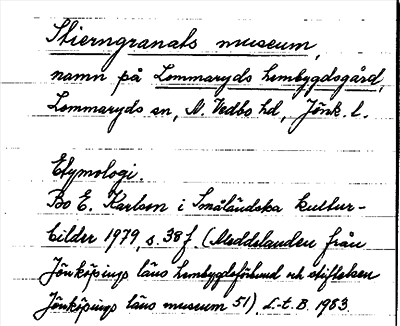 Stierngranats museum,
namn på Lommaryds hembygdsgård,
Lommaryds sn, N. Vedbo hd, Jönk. l.
Etymologi.
Bo E. Karlson i Småländska kultur-
bilder 1979, s. 38 f. (Meddelanden från
Jönköpings läns hembygdsförbund och stiftelsen
Jönköpings läns museum 51). L-t. B. 1983.